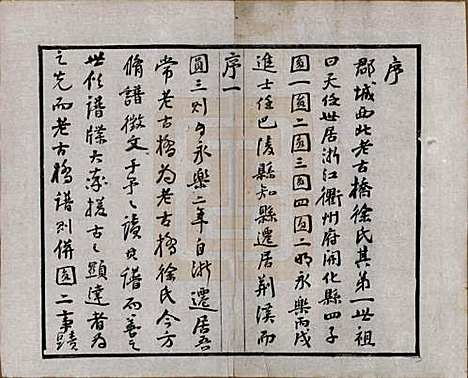 序
郡城西北老古橋徐氏其第一世祖
曰天任世居浙江衢州府開化縣四子
圓一圓二圓三圓四圓二明永樂丙戌
進士任巴陵縣知縣遷居荆溪而
序一
圓三則於永樂二年自浙遷居吾
常老古橋為老古橋徐氏今方
脩譜徵文于予予讀其譜而善之
世俗譜牒大率援古之顯達者為
之先而老古橋譜則併圓二事蹟